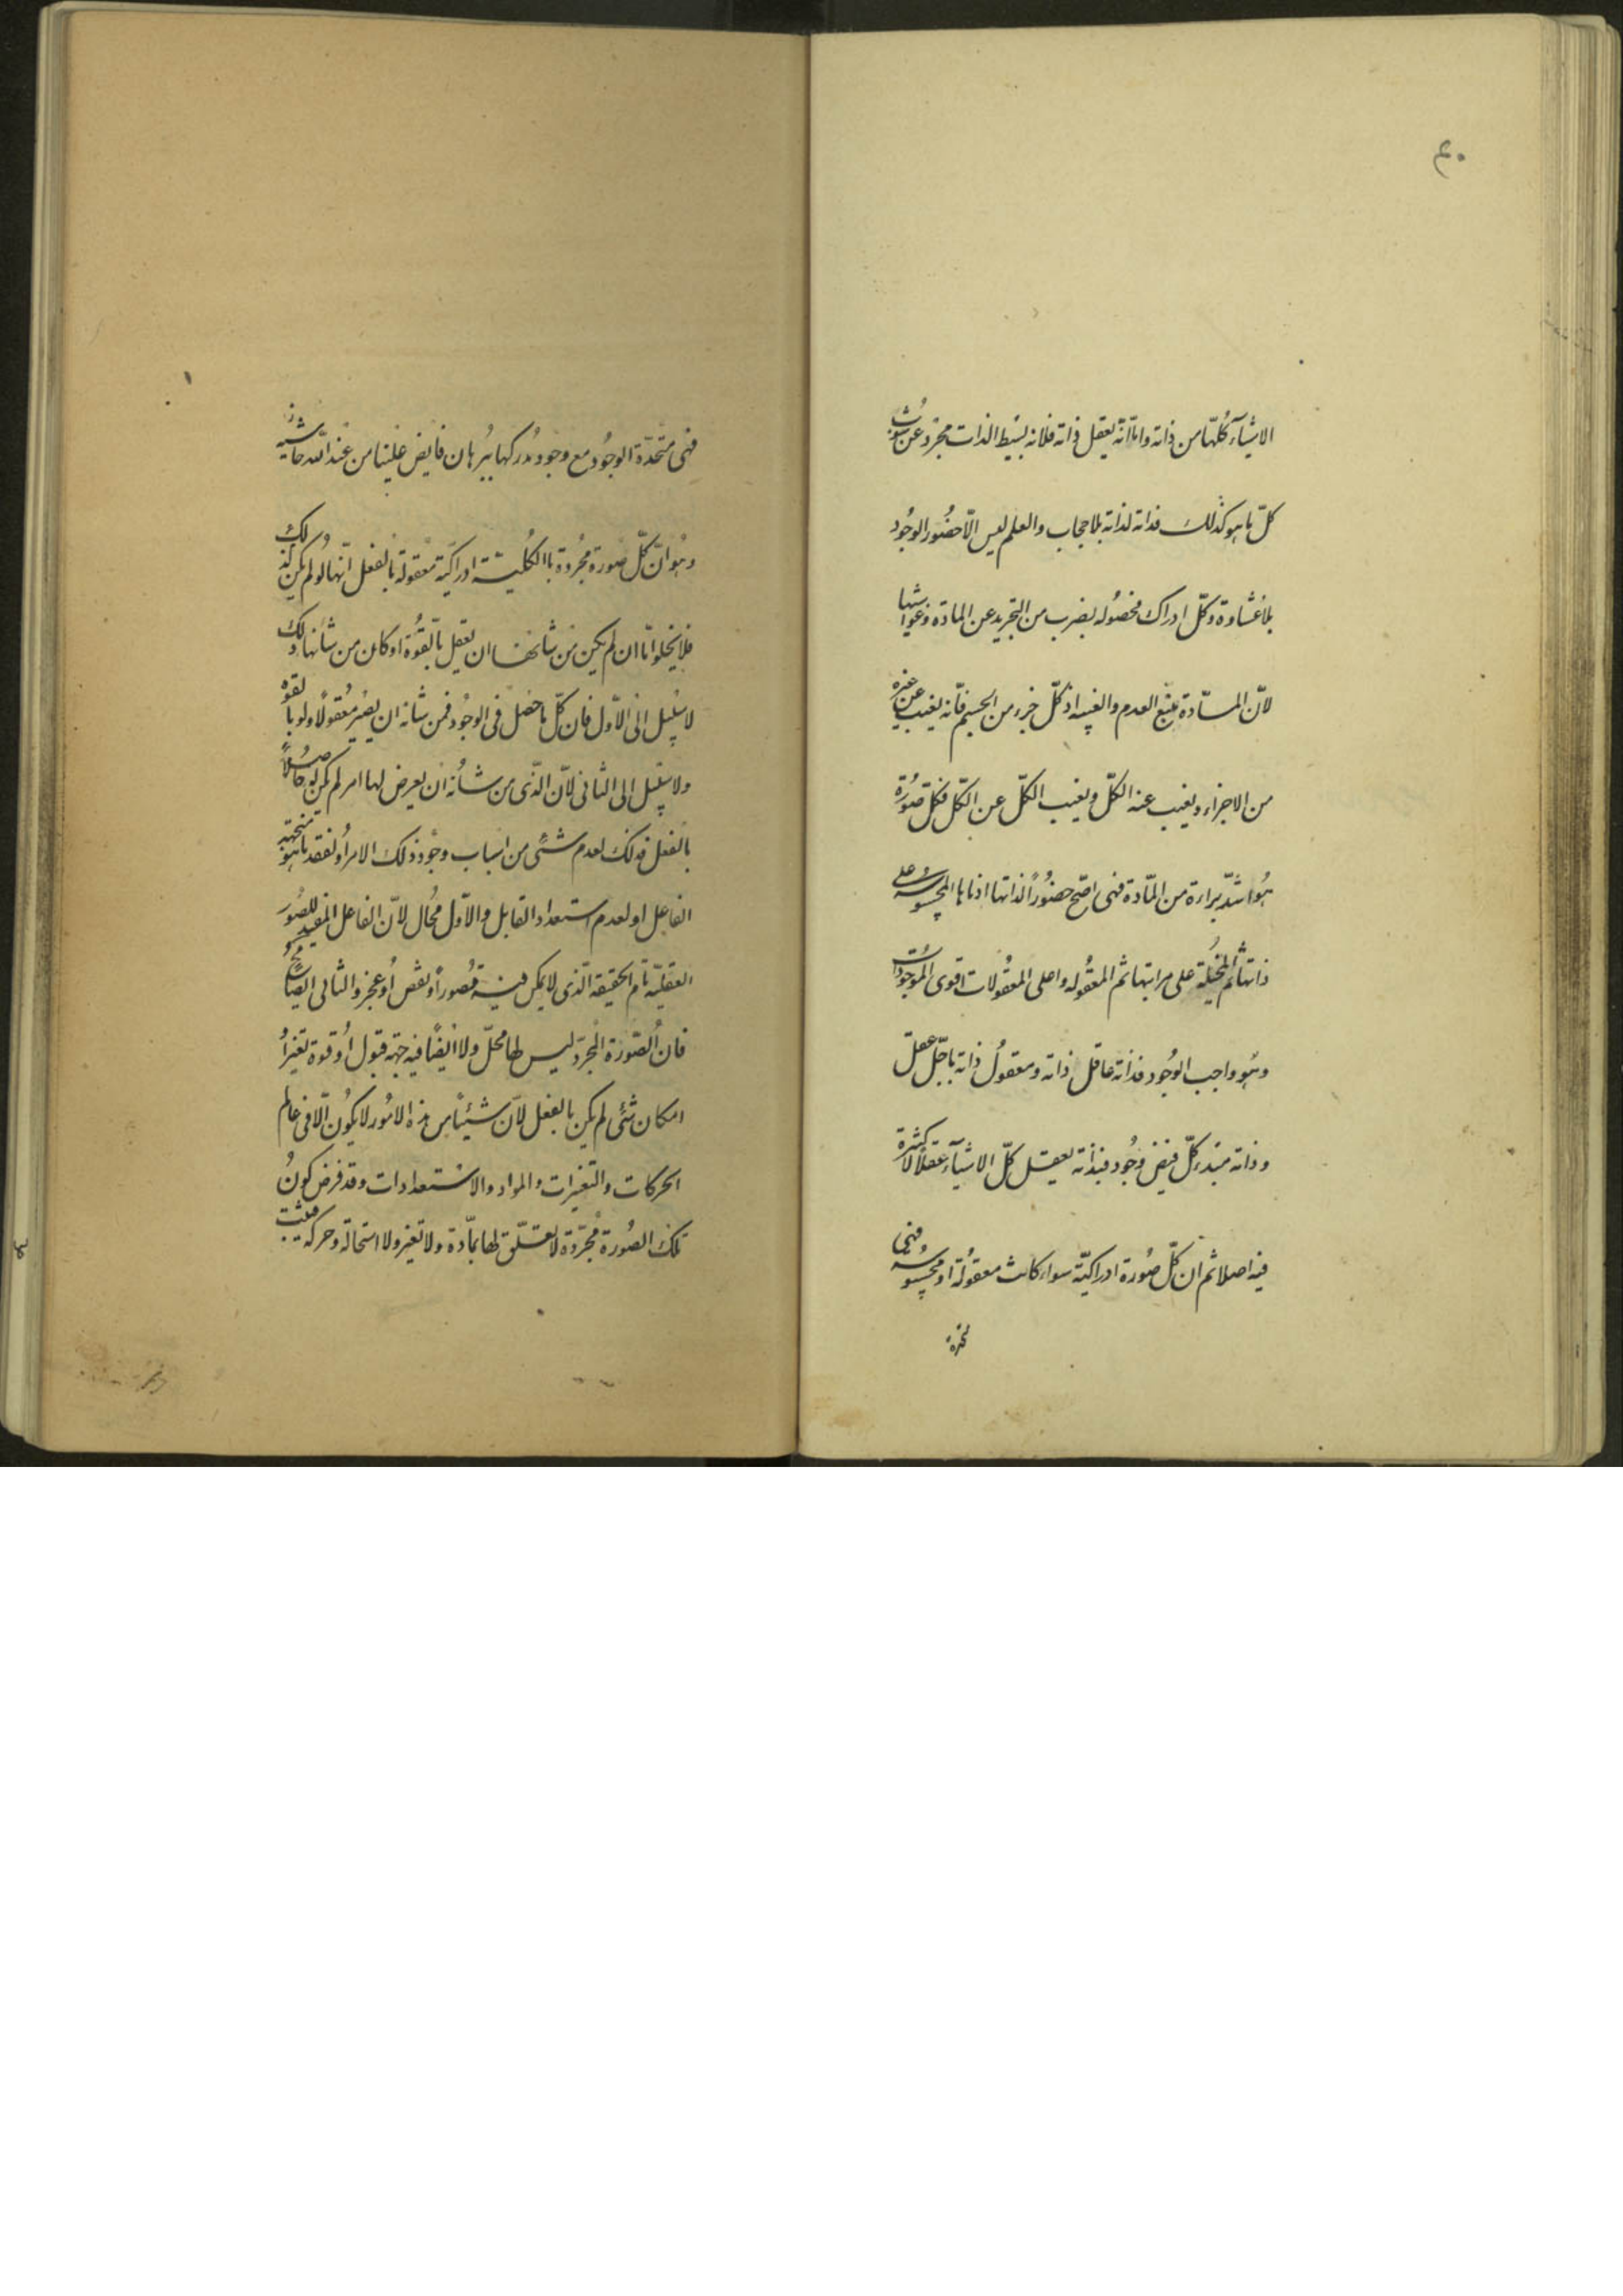 ٤٠
الاشيآء كلّها من ذاته وامّا انّه يعقل ذاته فلانه بسيط الذات مجرّد عن شوب
كلّ ما هو كذلك فذاته لذاته بلا حجاب والعلم ليس الّا حضور الوجود
بلا غشاوة وكلّ ادراك فحصوله بضرب من التجريد عن المادة وغواشيها
لانّ المادّة منبع العدم والغيبة اذ كلّ جزء من الجسم فانّه يغيب عن غيره
من الاجزاء ويغيب عنه الكلّ ويغيب الكلّ عن الكلّ فكلّ صورة
هو اشدّ براءة من المادّة فهى اصّح حضوراً لذاتها ادناها المحسوسة على
ذاتها ثم المتخيّلة على مراتبها ثم المعقوله واعلى المعقولات اقوى الموجودات
وهو واجب الوجود فذاته عاقل ذاته ومعقول ذاته باجلّ عقل
وذاته مبدء كلّ فيض وجود فبذاته يعقل كلّ الاشيآء عقلاً لا كثرة
فيه اصلا ثم ان كلّ صورة ادراكيّة سواء كانت معقولة او محسوسة فهى
فهى متحّدة الوجود مع وجود مدركها ببرهان فايض علينا من عند اللّه حاشيه
وهو انّ كلّ صورة مجردة باالكليّة ادراكيّة معقولة بالفعل انّها لو لم يكن كذلك
فلا يخلو امّا ان لم يكن من شانها ان يعقل بالقّوة او كان من شانها ذلك
لا سبيل الى الاوّل فان كلّ ما حصل فى الوجود فمن شانه ان يصير معقولاً ولو بالقوة
ولا سبيل الى الثانى لانّ الّذى من شأنه ان يعرض لها امر لم يكن له حاصلاً
بالفعل فذلك لعدم شئى من اسباب وجود ذلك الامر او لفقد ما هو منجهته
الفاعل او لعدم استعداد القابل والاوّل محُال لانّ الفاعل المفيد للصُور
العقليّة تام الحقيقه الّذى لا يمكن فيه قصوراً و نقص او عجز والثانى ايضاً محال
فان الصّورة المجرّدة ليس لها محلّ ولا ايضًا فيه جهة قبول او قوة تغير او
امكان شئى لم يكن بالفعل لانّ شيئًا من هذه الامُور لا يكون الّا فى عالم
الحركات والتغيرات والمواد والاستعدادات وقد فرض كون
تلك الصورة مجرّدة لا تعلّق لها بمادّة ولا تغير ولا استحالة وحركه فثبت